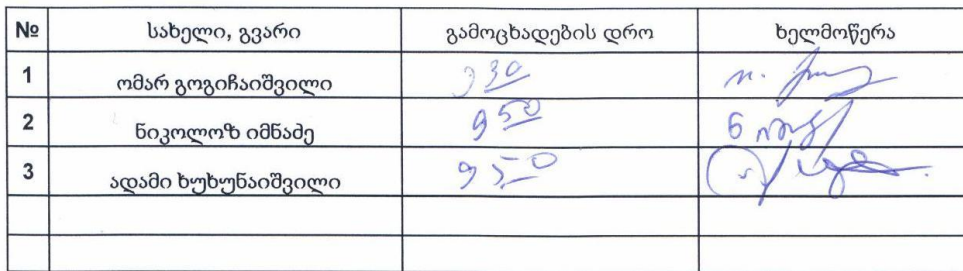 № სახელი, გვარი გამოცხადების დრო ხელმოწერა
1 ომარ გოგიჩაიშვილი
2 ნიკოლოზ იმნაძე 9 50
3 ადამი ხუხუნაიშვილი 9 50